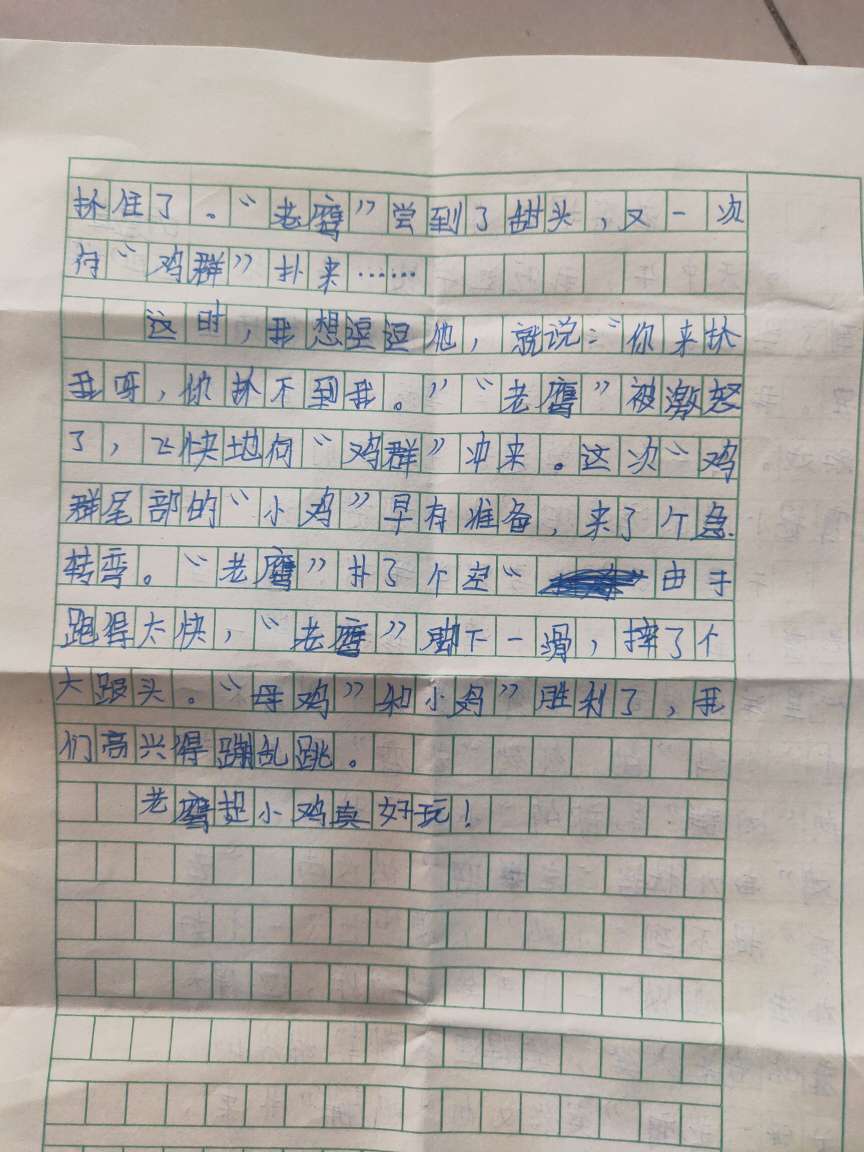 抓住了。“老鹰”尝到了甜头，又一次
向“鸡群”扑来……
这时，我想逗逗他，就说：“你来抓
我呀，你抓不到我。”“老鹰”被激怒
了，飞快地向“鸡群”冲来。这次“鸡
群尾部的“小鸡”早有准备，来了个急
转弯。“老鹰”扑了个空“ 由于
跑得太快，“老鹰”脚下一滑，摔了个
大跟头。“母鸡”和小鸡”胜利了，我
们高兴得蹦乱跳。
老鹰捉小鸡真好玩！